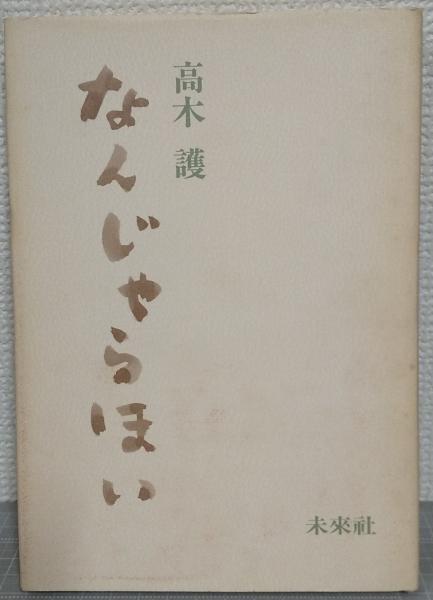 高木 護
なんじゃらほい
未來社